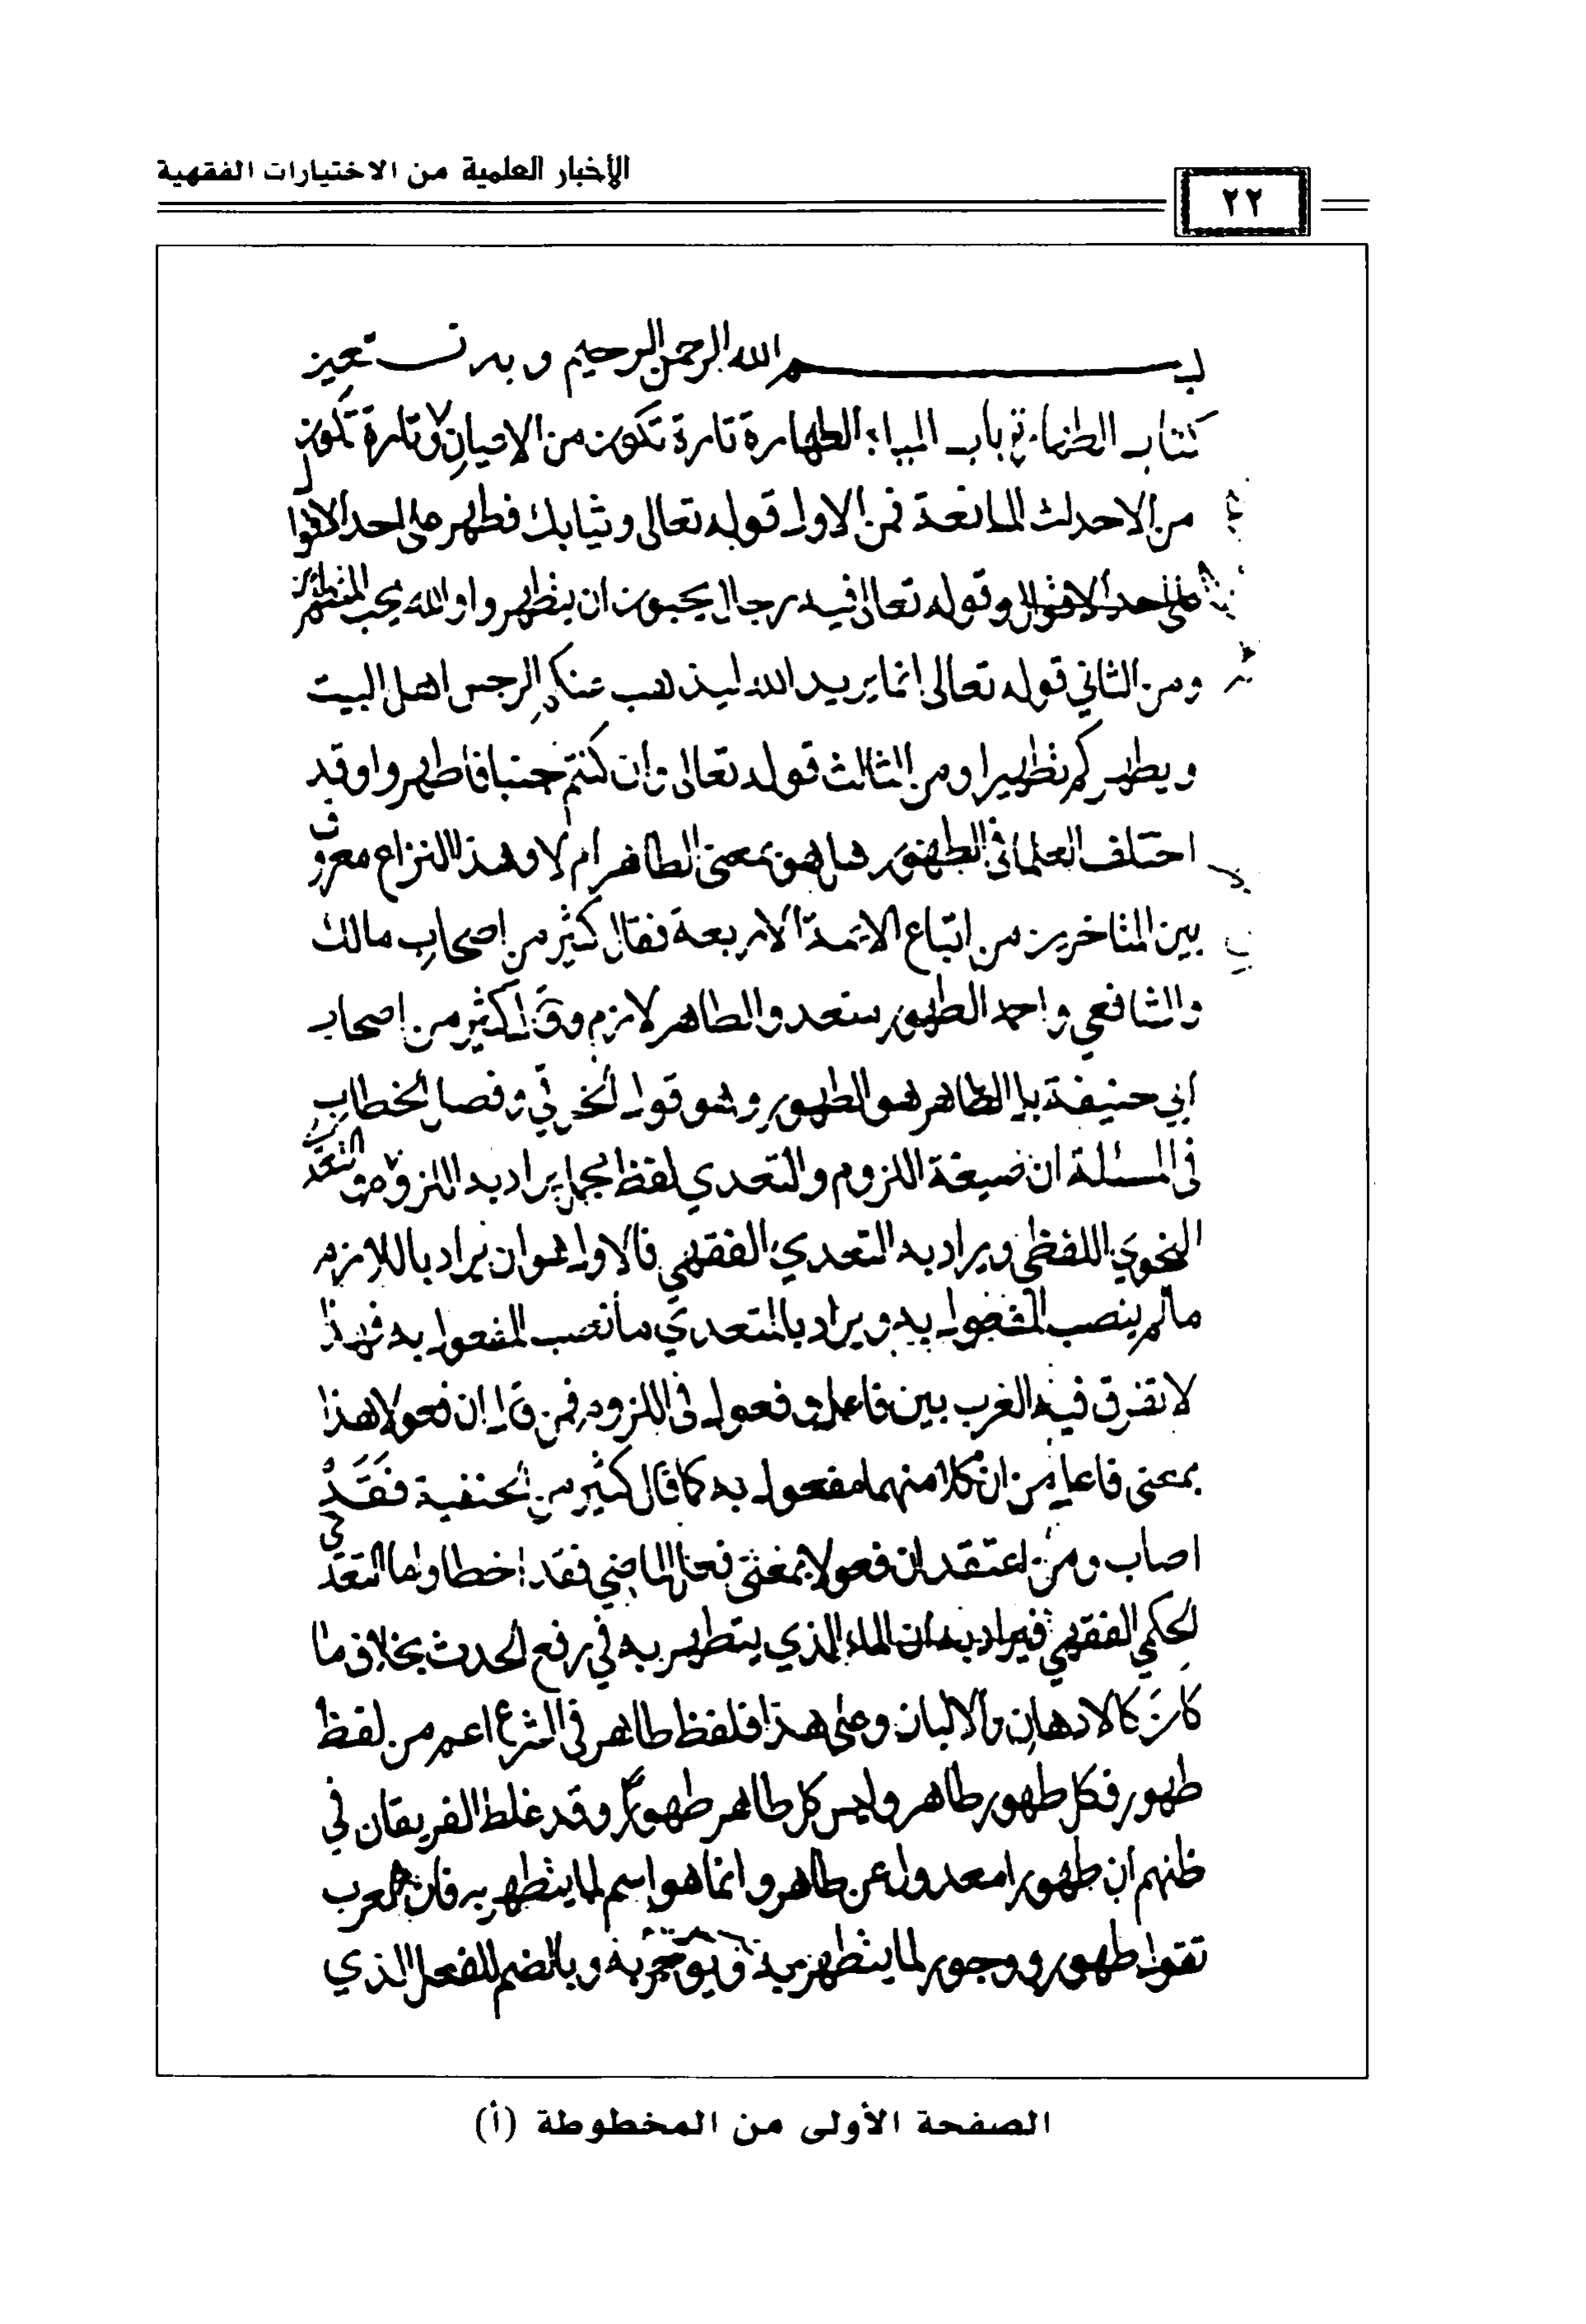 الأخبار العلمية من الاختيارات الفقهية
٢٢
بسم الله الرحمن الرحيم وبه نستعين
كتاب الطهارة باب المياه الطهارة تارة تكون من الاعيان وتارة تكون
من الاحداث المانعة فمن الاول قوله تعالى وثيابك فطهر على احد الاقوال
على احد الاقوال وقوله تعالى فيه رجال يحبون ان يتطهروا والله يحب المتطهرين
ومن الثاني قوله تعالى انما يريد الله ليذهب عنكم الرجس اهل البيت
ويطهركم تطهيرا ومن الثالث قوله تعالى وان كنتم جنبا فاطهروا وقد
اختلف العلما في الطهور هل هو بمعنى الطاهر ام لا وهذا النزاع معروف
بين المتاخرين من اتباع الايمة الاربعة فقال كثير من اصحاب مالك
والشافعي واحمد الطهور متعد والطاهر لازم وقال كثير من اصحاب
ابي حنيفة بل الطاهر هو الطهور وهو قول الخرقي وفصل الخطاب
في المسئلة ان صيغة اللزوم والتعدي لفظ مجمل يراد به اللزوم والتعدي
النحوي اللفظي ويراد به التعدي الفقهي فالاول هو ان يراد باللازم
ما لم ينصب المفعول به ويراد بالمتعدي ما نصب المفعول به فهذا
لا تفرق فيه العرب بين فاعل وفعول في اللزوم فمن قال ان فعولا هذا
بمعنى فاعل من ان كلا منهما مفعول به كما قال كثير من الحنفية فقد
اصاب ومن اعتقد ان فعولا بمعنى فعل الماضي فقد اخطا واما التعدي
الحكمي الفقهي فيراد به ان الماء الذي يتطهر به في رفع الحدث بخلاف ما
كان كالادهان والالبان وعلى هذا فلفظ طاهر في الشرع اعم من لفظ
طهور فكل طهور طاهر وليس كل طاهر طهورا وقد غلط الفريقان في
ظنهم ان طهورا معدول عن طاهر وانما هو اسم لما يتطهر به فان العرب
تقول طهور ووجور لما يتطهر به ويوجر به وبالضم للفعل الذي
الصفحة الأولى من المخطوطة (أ)